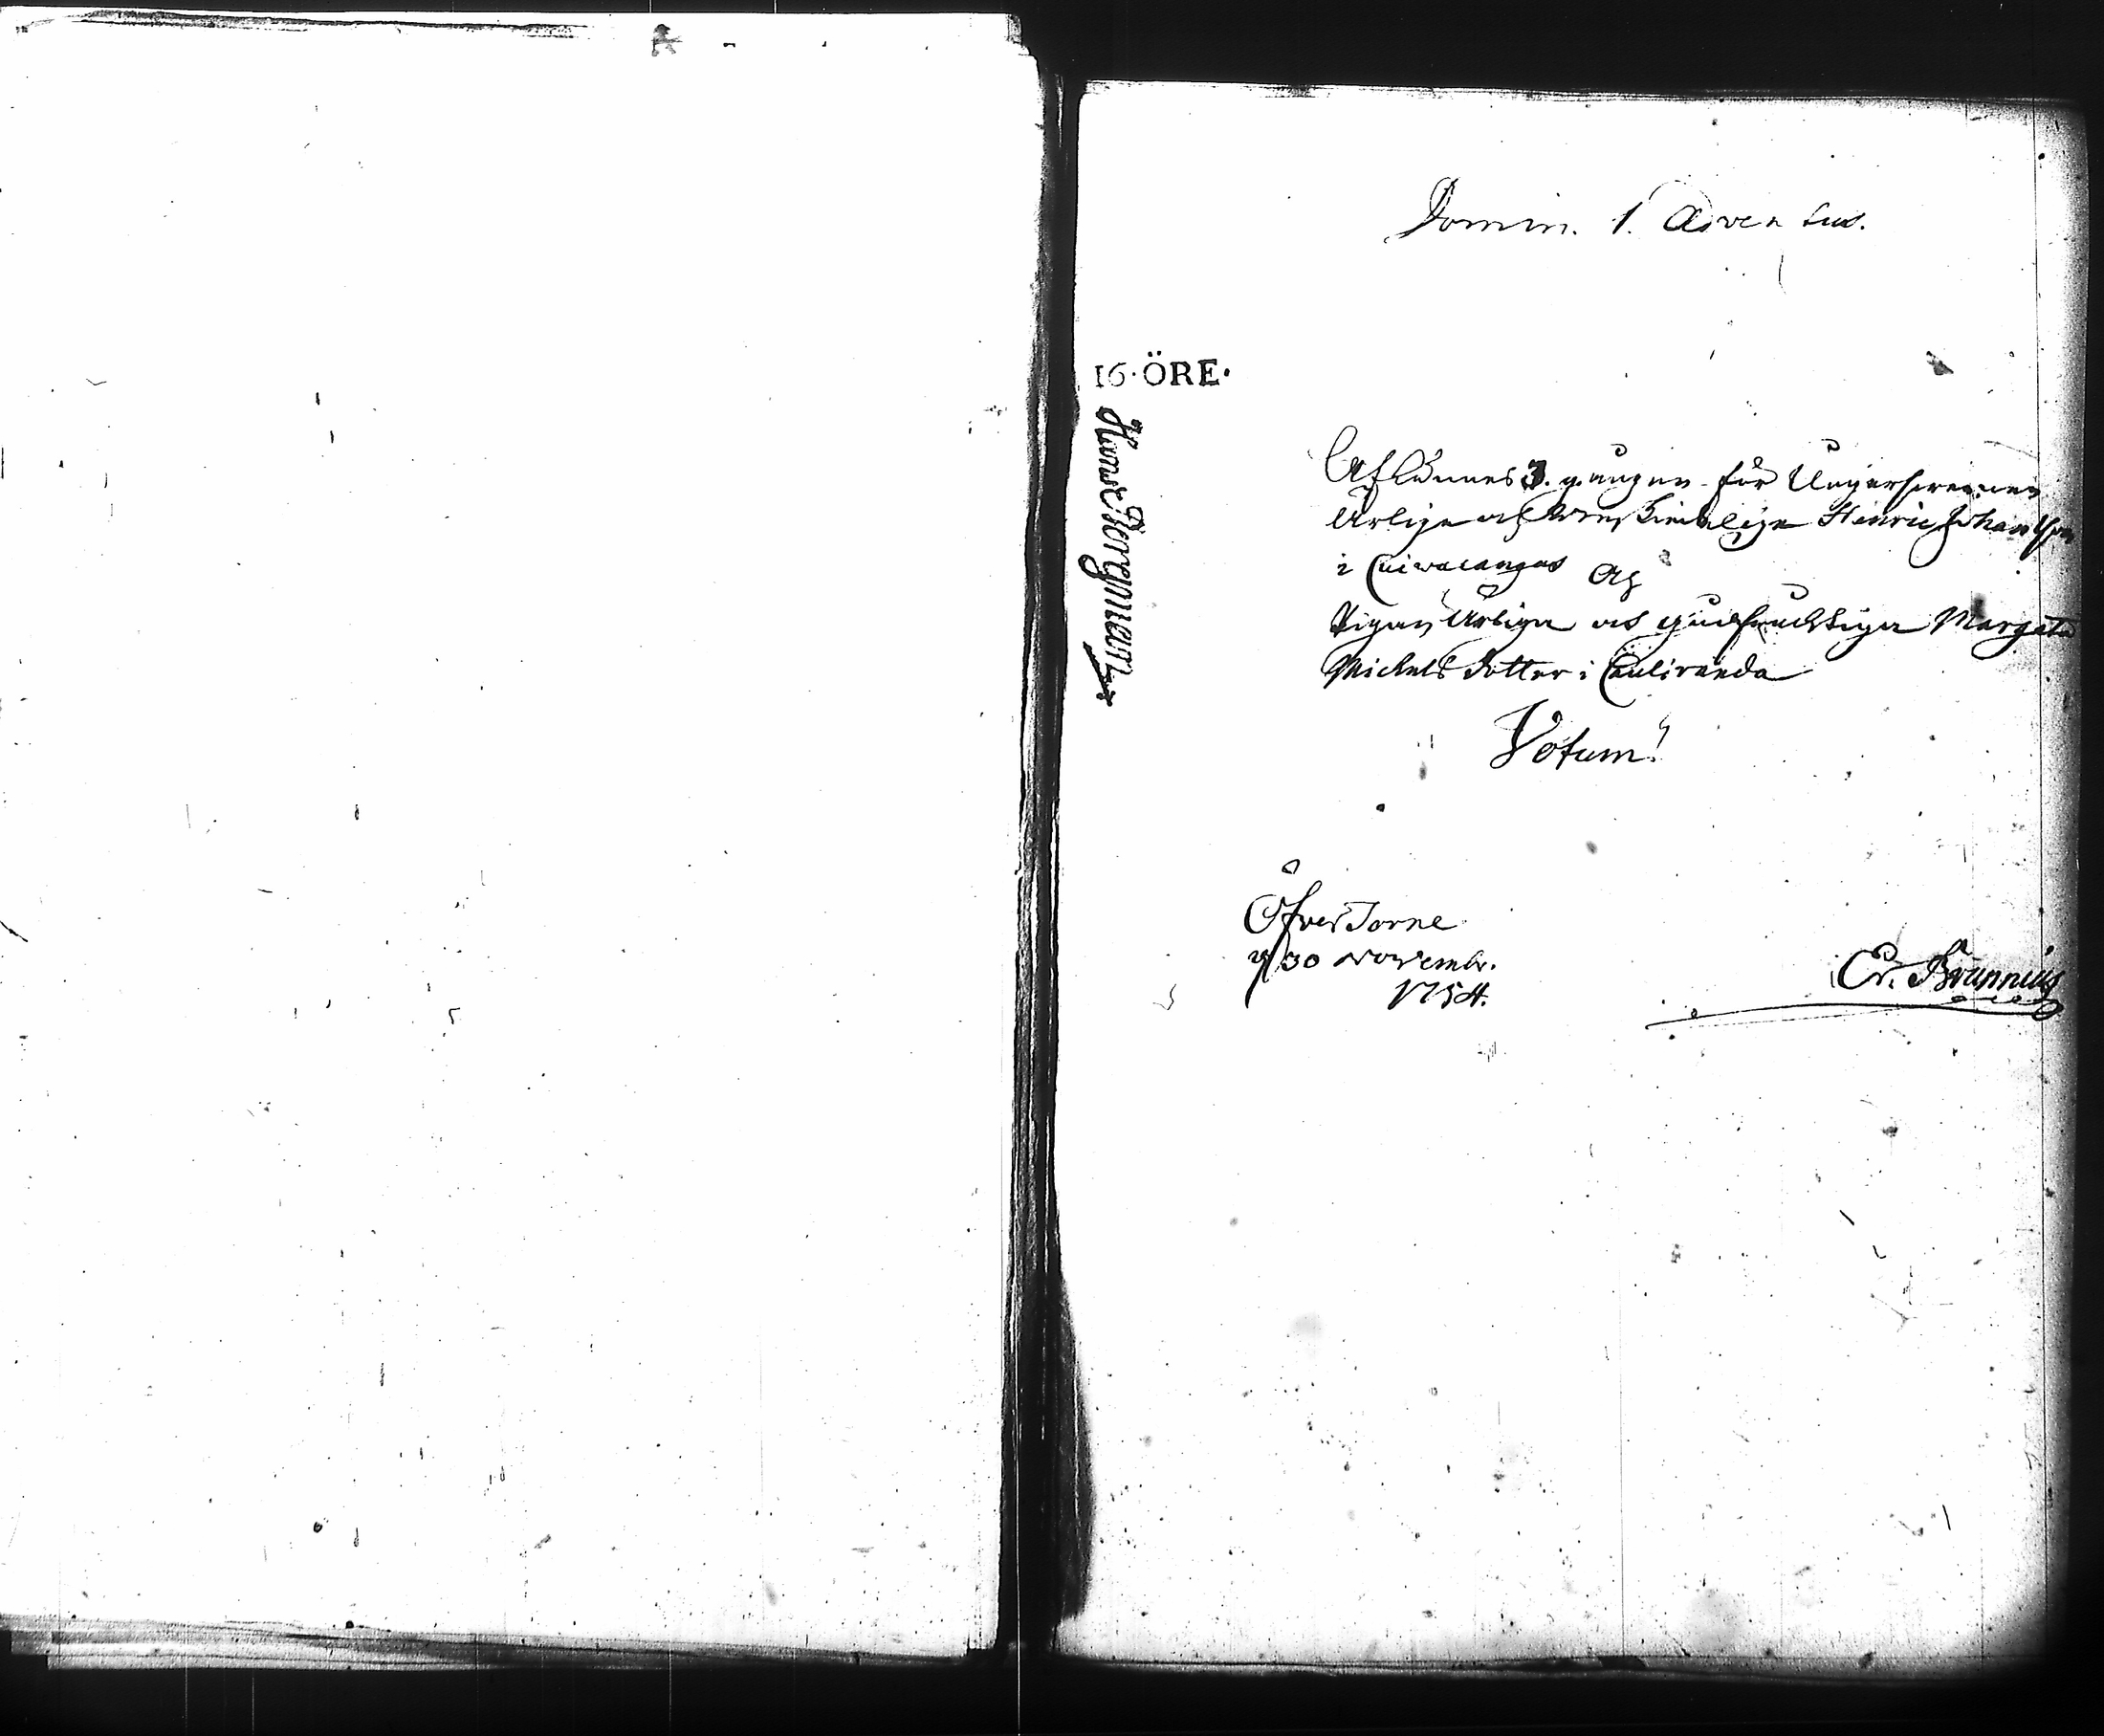 Domin. 1. Adventus.
16·ÖRE·
Aflÿsnes 3. gången för Ungersvennen
Ärlige och Beskiedelige Henric Johansson
i Cuivacangas Och
Pigan Ärliga och gudfrucktiga Margeta
Michels dotter i Cauliranda
Votum!
Öfver Torne
d 30 Novembr.
1754.
Er. Brunnius